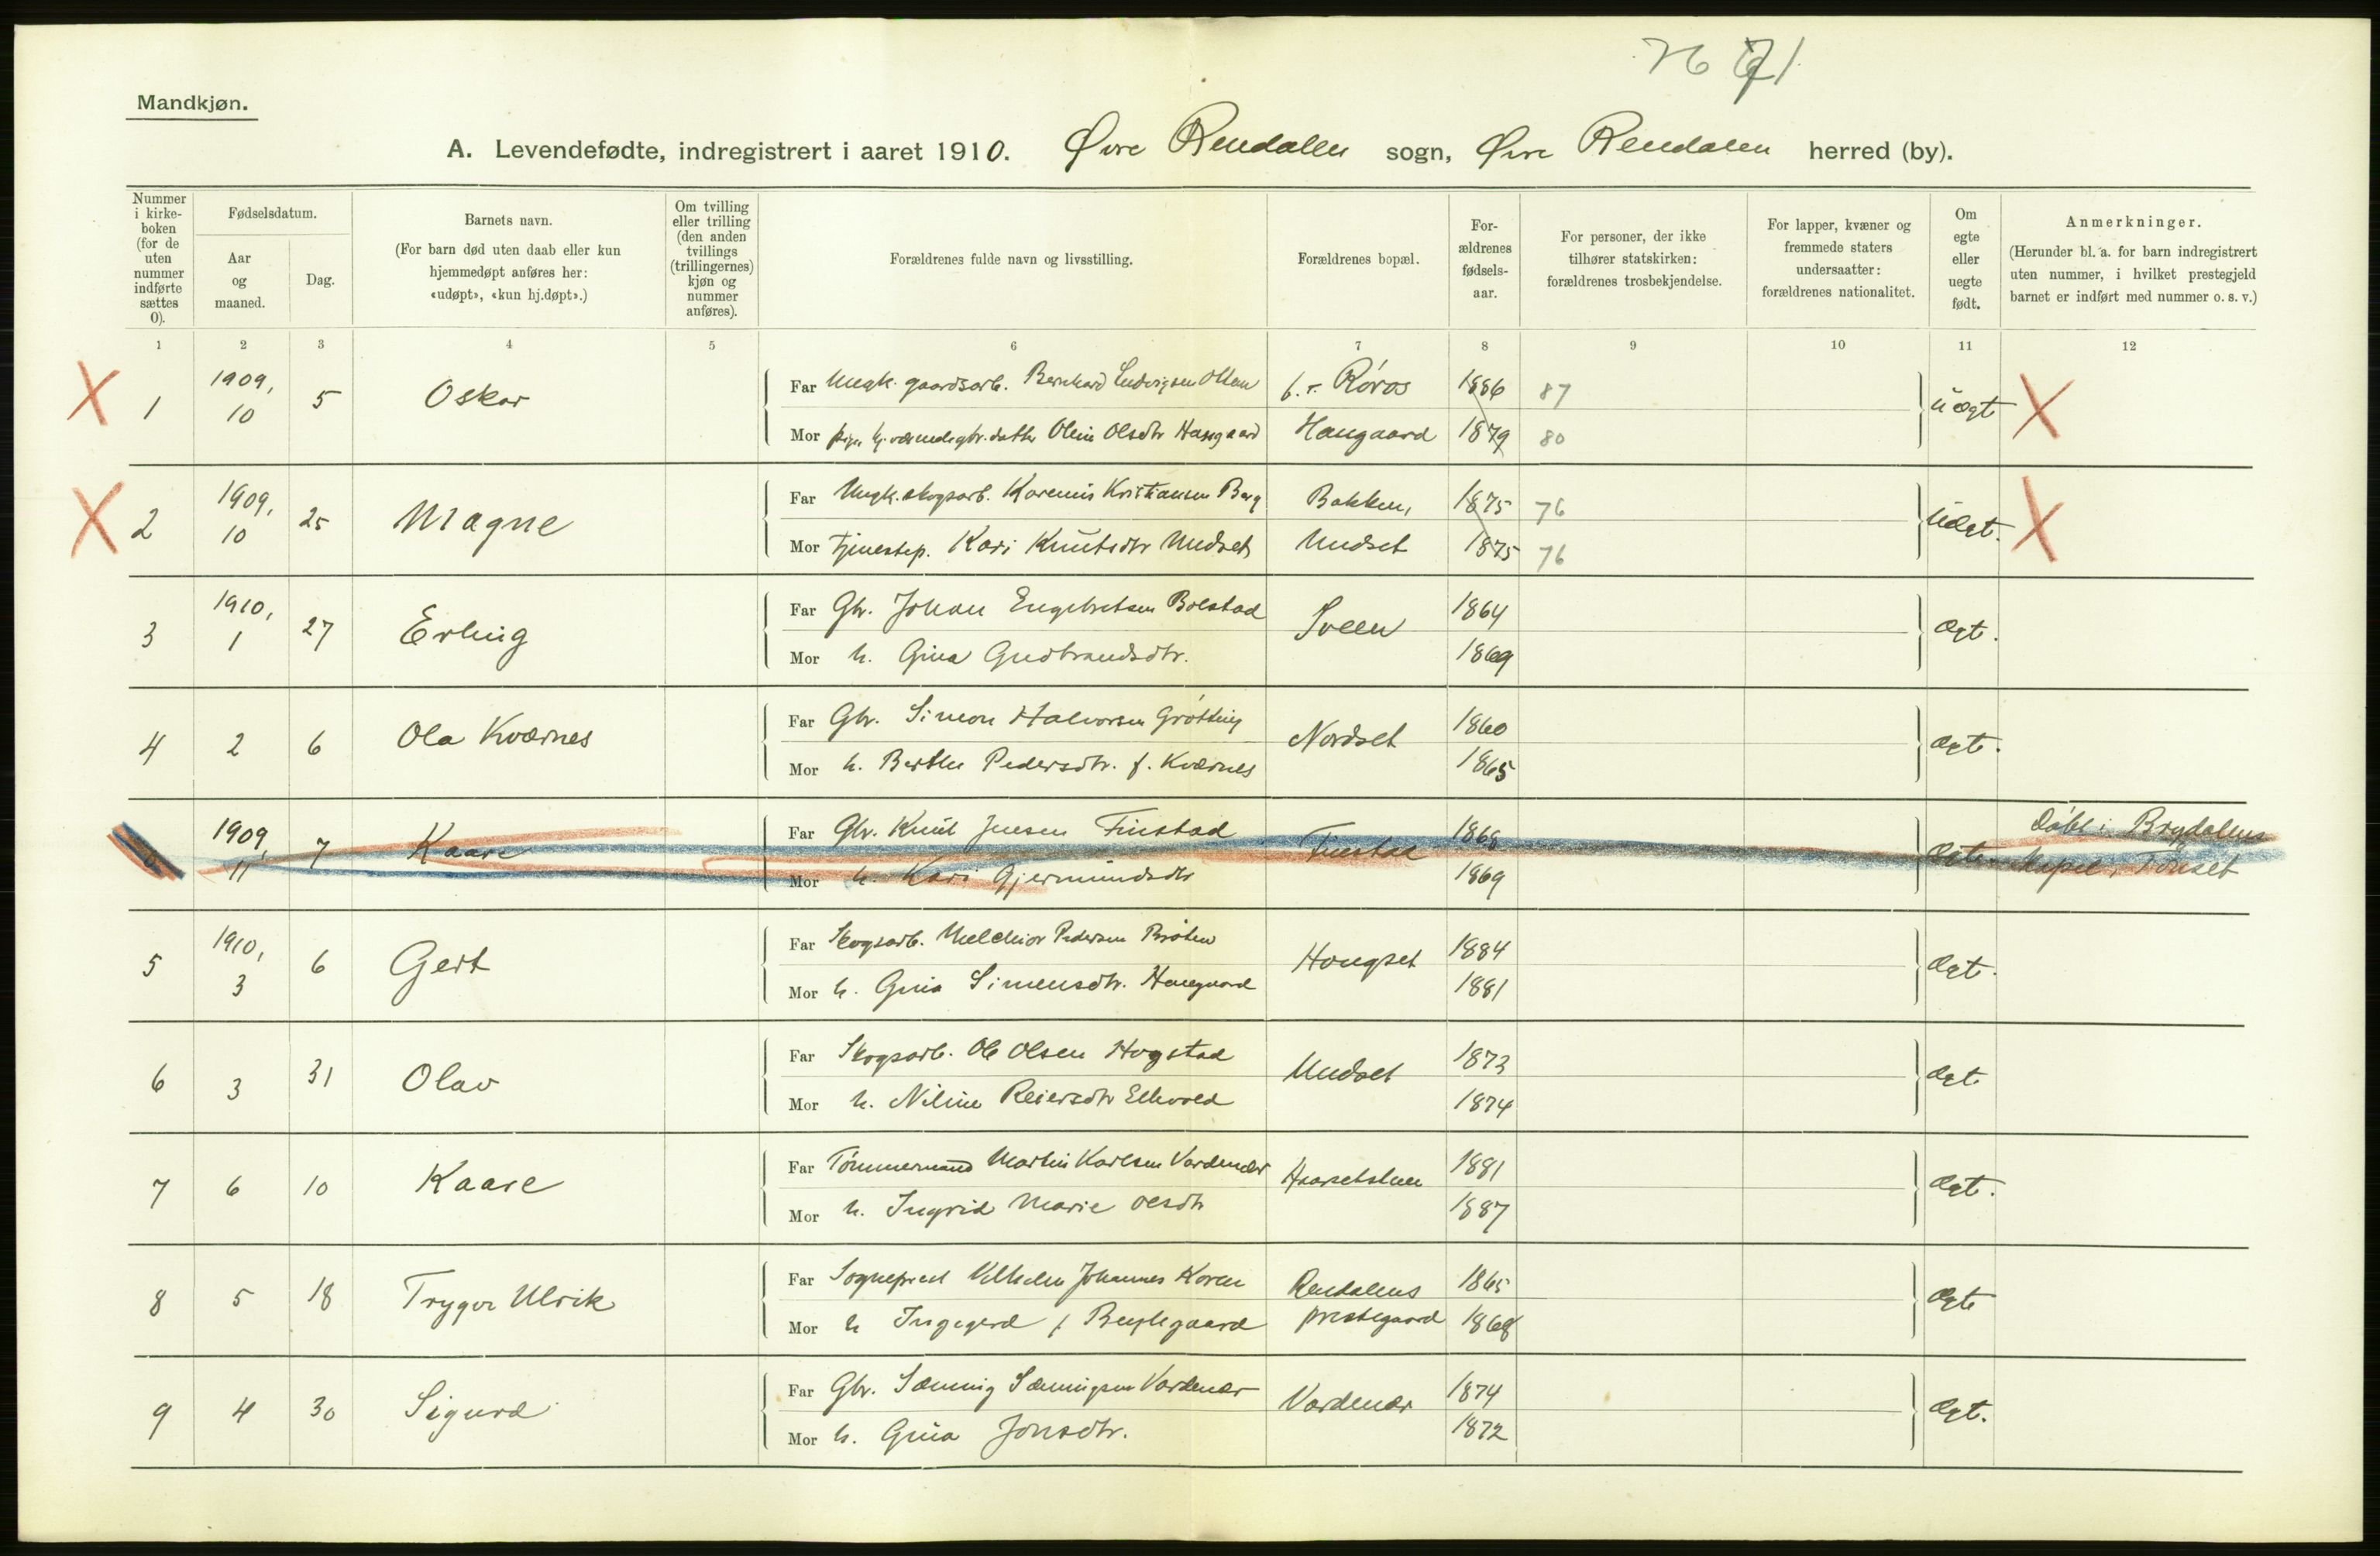 76 71
Mandkjøn.
A. Levendefødte, indregistrert i aaret 1910. Øvre Rendalen sogn, Øvre Rendalen herred (by).
Nummer i kirke-boken (for de uten nummer indførte sættes 0).
Fødselsdatum.
Aar og maaned.
Dag.
Barnets navn.
(For barn død uten daab eller kun hjemmedøpt anføres her: «udøpt», «kun hj.døpt».)
Om tvilling eller trilling (den anden tvillings (trillingernes) kjøn og nummer anføres).
Forældrenes fulde navn og livsstilling.
Forældrenes bopæl.
For-ældrenes fødsels-aar.
For personer, der ikke tilhører statskirken: forældrenes trosbekjendelse.
For lapper, kvæner og fremmede staters undersaatter: forældrenes nationalitet.
Om egte eller uegte født.
Anmerkninger.
(Herunder bl. a. for barn indregistrert uten nummer, i hvilket prestegjeld barnet er indført med nummer o. s. v.)
1 2 3 4 5 6 7 8 9 10 11 12
X 1 1909, 10 5 Oskar Far Ungk. gaardsarb. Bernhard Ludvigsen Olsen f. r. Røros 1886 87 uægt X
Mor Olsdtr Haugaard Haugaard 1879 80
X 2 1909, 10 25 Magne Far Ungk. skogsarb. Karenius Kristiansen Berg Bakken, 1875 76 uægt. X
Mor Tjenestep. Kari Knutsdtr Undset Undset 1875 76
3 1910, 1 27 Erling Far Gbr. Johan Engebretsen Bolstad Sveen 1864 ægte.
Mor h. Gina Gudbrandsdtr. 1869
4 2 6 Ola Kværnes Far Gbr. Simon Halvorsen Grøtting Nordset 1860 ægte.
Mor h. Berthe Pedersdtr. f. Kværnes 1865
1909, 11 7 Kaare Far Gbr. Knut Jensen Finstad Finstad 1868 ægte Døbt i Brydalens
Mor h. Kari Gjermundsdtr 1869 kapel, Tønset
5 1910, 3 6 Gert Far Skogsarb. Melchior Pedersen Bråten Hongset 1884 ægte.
Mor h. Gina Simensdtr. Haugaard 1881
6 3 31 Olav Far Skogsarb. Ole Olsen Hogstad Undset 1873 ægt.
Mor h. Niline Reiersdtr Elkvold 1874
7 6 10 Kaare Far Tømmermand Martin Karlsen Vardenær 1881 ægt.
Mor h. Ingrid Marie Olsdtr 1887
8 5 18 Trygve Ulrik Far Sogneprest Vilhelm Johannes Koren Rendalens 1865 ægte
Mor h. Ingegerd f. prestegaard 1868
9 4 30 Sigurd Far Gbr. Sæming Sæmingsen Vardenær Vardenær 1874 ægt.
Mor h. Gina Jonsdtr. 1872